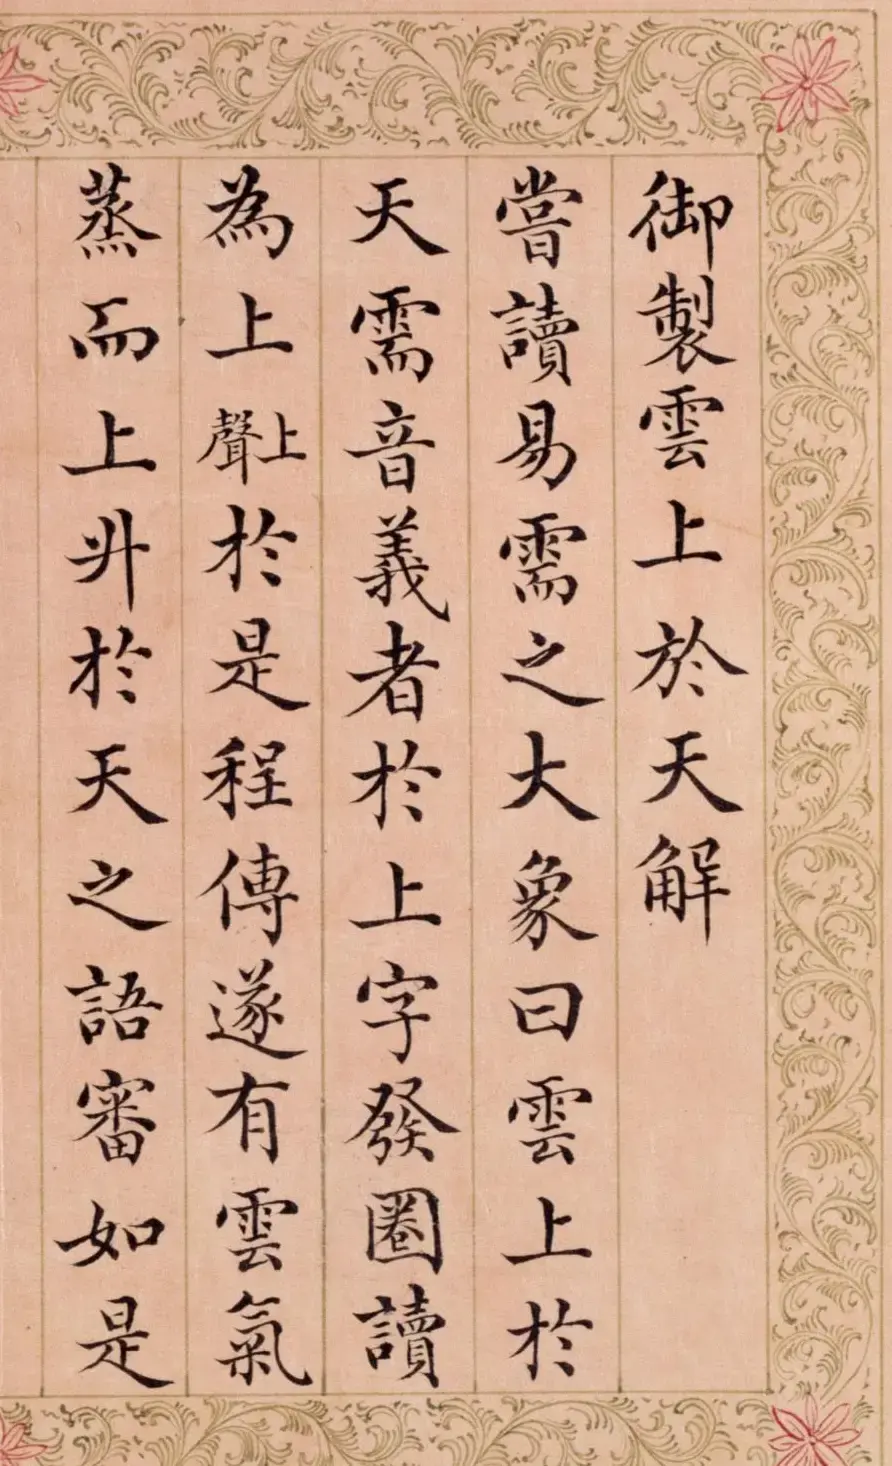 御製雲上於天解
嘗讀易需之大象曰雲上於
天需音義者於上字發圈讀
為上上聲於是程傳遂有雲氣
蒸而上升於天之語審如是